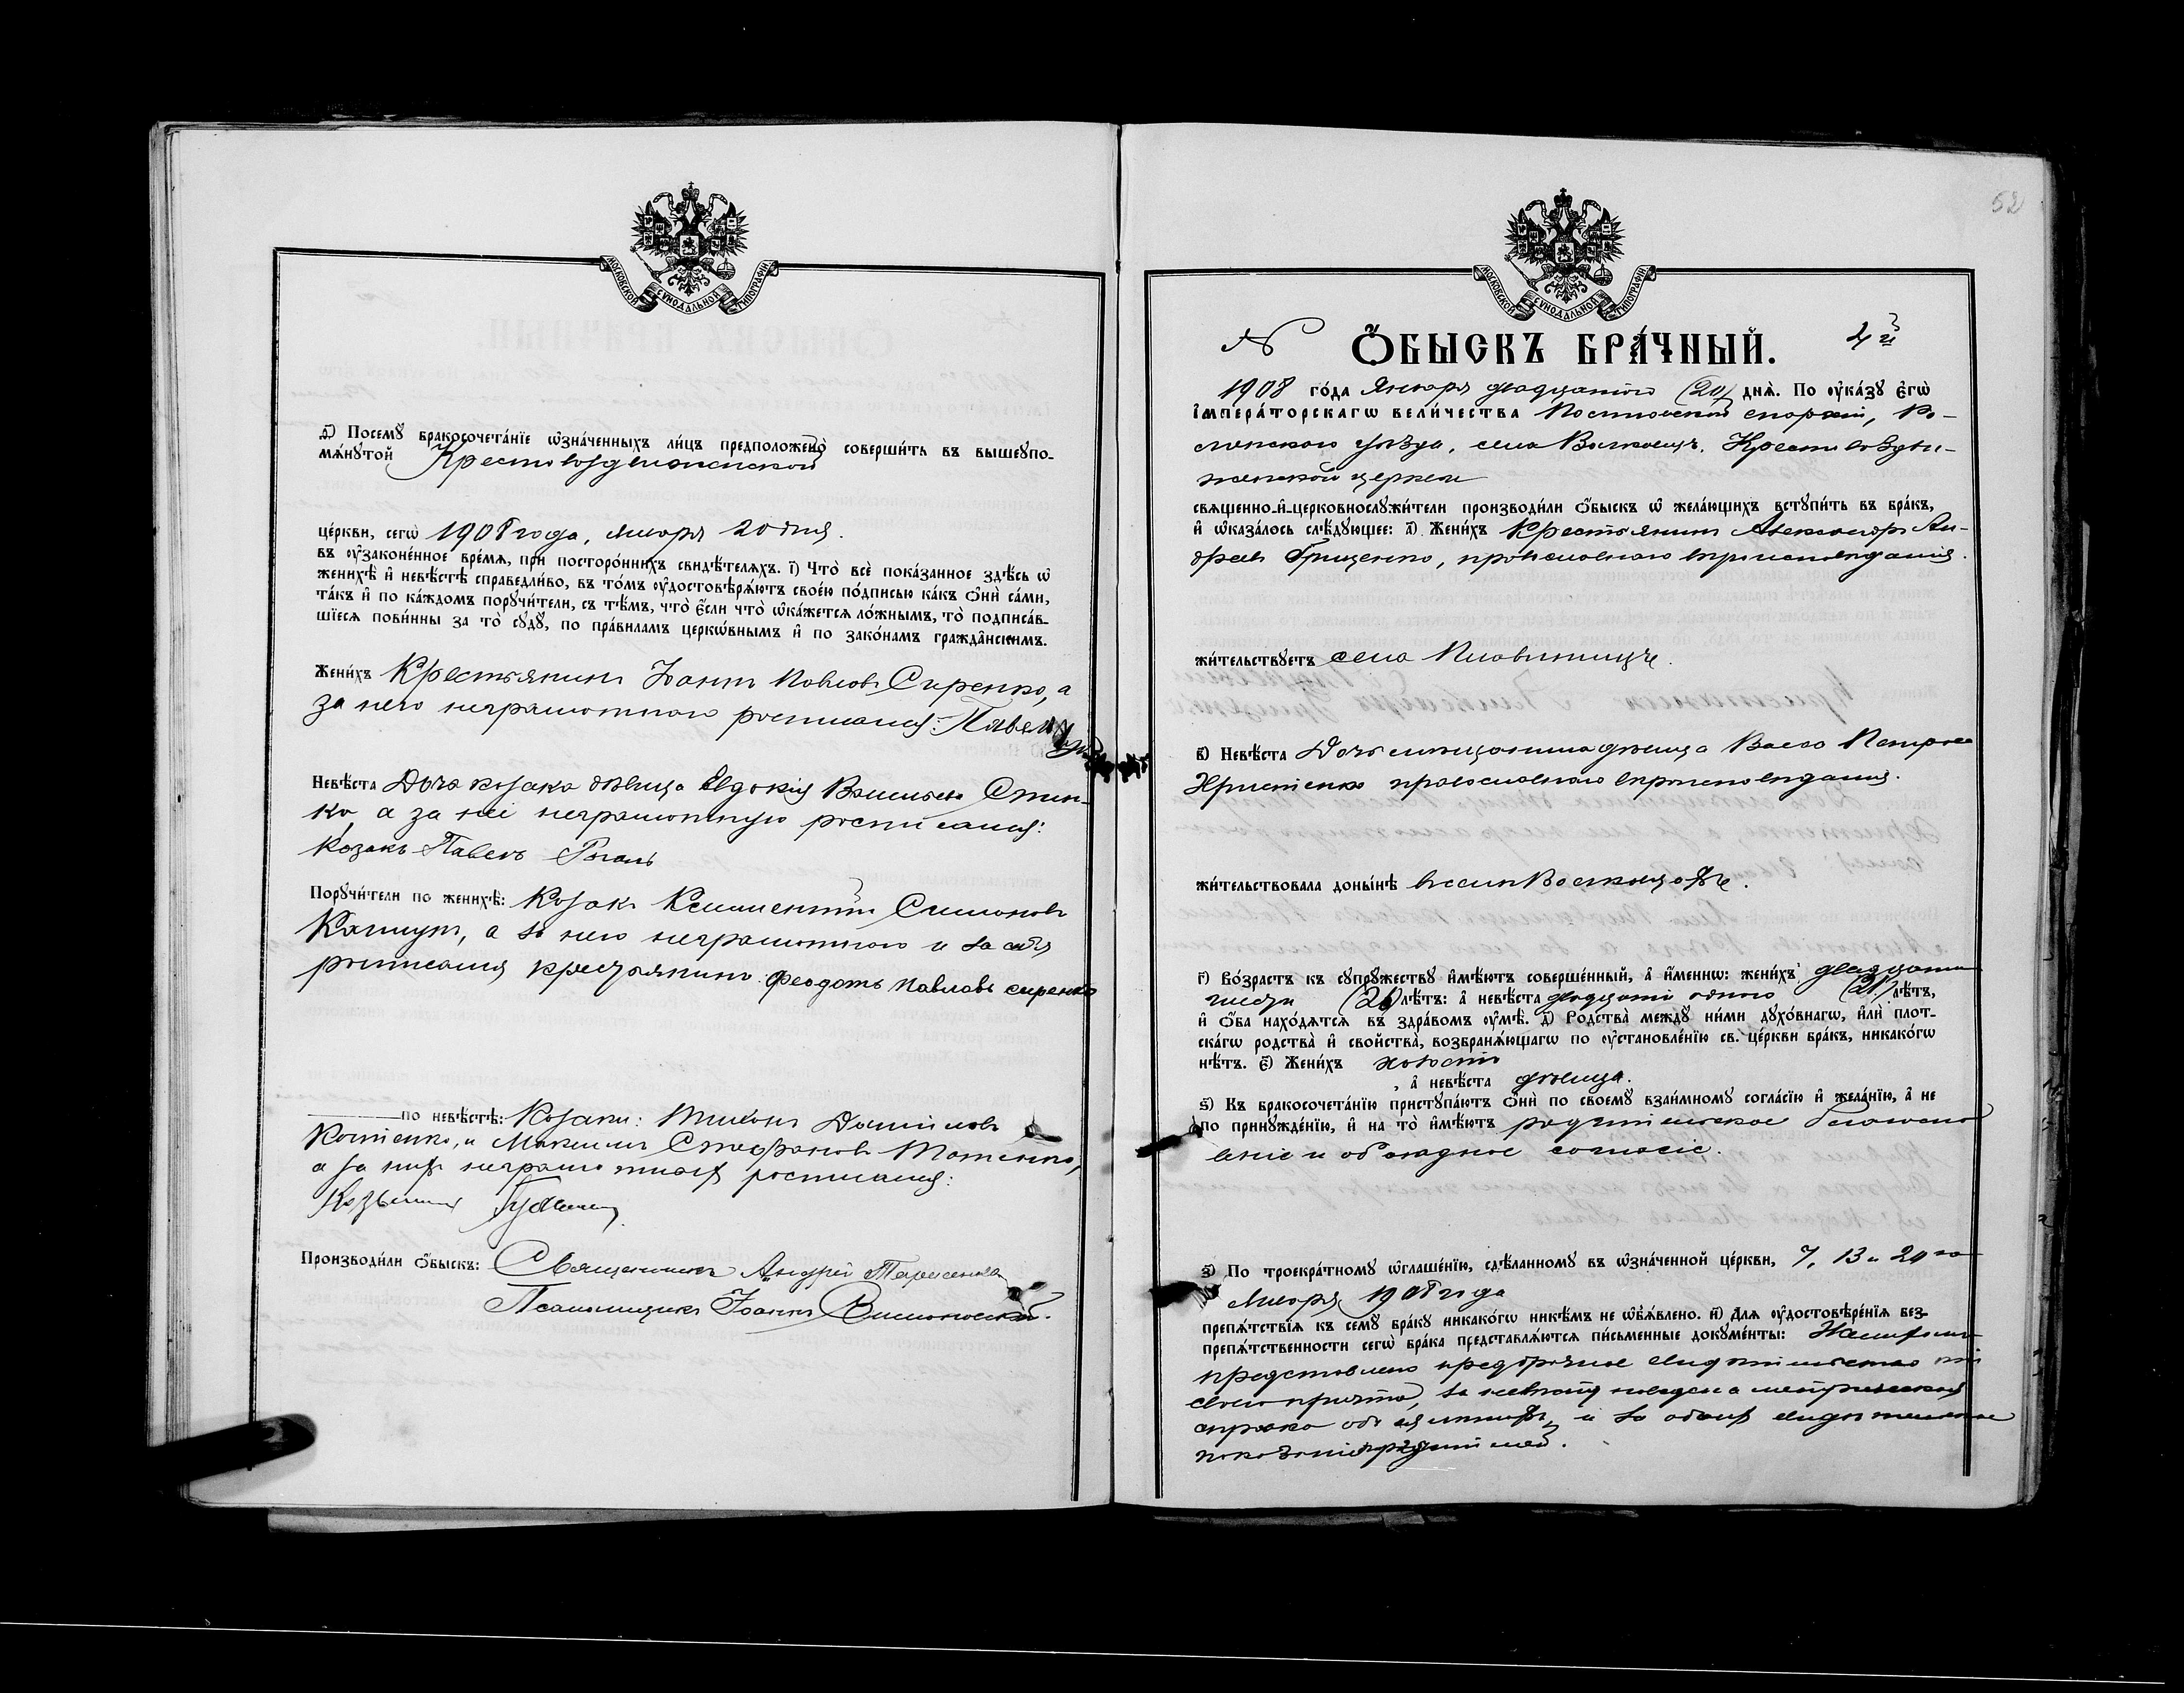 МОСКОВСКОЙ СѴНОДАЛЬНОЙ ТИПОГРАФІИ
Посемꙋ бракосочета́нїе ѡ҆зна́ченныхъ ли́цъ предположено̀ соверши́ть въ вышеꙋпо-
мѧ́нꙋтой Крестовоздвиженской
це́ркви, сегѡ̀ 1908 года, Января 20 дня.
въ ᲂу҆законе́нное вре́мѧ, при посторо́ннихъ свидѣ́телѧхъ. і҃) Что̀ всѐ пока́занное здѣ́сь ѡ҆
женихѣ̀ и҆ невѣ́стѣ справедли́во, въ то́мъ ᲂу҆достовѣрѧ́ютъ свое́ю по́дписью ка́къ ѻ҆нѝ са́ми,
та́къ и҆ по ка́ждомъ порꙋчи́тели, съ тѣ́мъ, что̀ є҆́сли что̀ ѡ҆ка́жетсѧ ло́жнымъ, то̀ подписа́в-
шїесѧ пови́нны за то̀ сꙋдꙋ̀, по пра́виламъ церко́внымъ и҆ по зако́намъ гражда́нскимъ.
Жени́хъ Крестьянинъ Іоаннъ Павловъ Сиренко, а
за него неграмотнаго росписался: Павелъ
Невѣ́ста Дочь козака дѣвица Евдокія Васильева Стен-
ко, а за неё неграмотную росписался:
Козакъ Павелъ Рогаль
Порꙋчи́тели по женихѣ̀: Козакъ Климентій Симоновъ
а за него неграмотного и за себя
росписался крестьянинъ: Феодотъ Павловъ сиренко
по невѣ́стѣ: Козаки: Тихонъ Даниловъ
Костенко, и Максимъ Стефановъ
а за нихъ неграмотныхъ росписался:
Козьма
Производи́ли ѻ҆́быскъ: Священникъ Андрей Тарасевичъ
Псаломщикъ Іоаннъ
52
МОСКОВСКОЙ СѴНОДАЛЬНОЙ ТИПОГРАФІИ
№ Ѻ҆́БЫСКЪ БРА́ЧНЫЙ. 4й
1908 го́да Января двадцатого (20) днѧ̀. По ᲂу҆ка́зꙋ є҆гѡ̀
і҆мпера́торскагѡ вели́чества Полтавской епархіи, Ро-
менского уѣзда, села Волковецъ, Крестовоздви-
женской церкви
свѧщенно-и҆-церковнослꙋжи́тели производи́ли ѻ҆́быскъ ѡ҆ жела́ющихъ встꙋпи́ть въ бра́къ,
и҆ ѡ҆каза́лось слѣ́дꙋющее: а҃) Жени́хъ Крестьянинъ Александръ Ан-
дреевъ Гриценко, православнаго вѣроисповѣданія.
жи́тельствꙋетъ села Плавинищъ.
в҃) Невѣ́ста Дочь мѣщанина дѣвица Васса Петрова
Христенко православного вѣроисповѣданія.
жи́тельствовала доны́нѣ въ селѣ Волковцахъ.
г҃) Во́зрастъ къ сꙋпрꙋ́жествꙋ и҆мѣ́ютъ соверше́нный, а҆ и҆́меннѡ: жени́хъ двадцати
шести (26) лѣ́тъ: а҆ невѣ́ста двадцати одного (21) лѣ́тъ,
и҆ ѻ҆́ба нахо́дѧтсѧ въ здра́вомъ ᲂу҆мѣ̀. д҃) Родства̀ междꙋ̀ ни́ми дꙋхо́внагѡ, и҆лѝ плот-
ска́гѡ родства̀ и҆ свойства̀, возбранѧ́ющагѡ по ᲂу҆становле́нїю св. це́ркви бра́къ, никако́гѡ
нѣ́тъ. є҃) Жени́хъ холостъ
, а҆ невѣ́ста дѣвица.
ѕ҃) Къ бракосочета́нїю пристꙋпа́ютъ ѻ҆нѝ по своемꙋ̀ взаи́мномꙋ согла́сїю и҆ жела́нїю, а҆ не
по принꙋжде́нїю, и҆ на то̀ и҆мѣ́ютъ родительское благосло-
веніе и обоюдное согласіе.
По троекра́тномꙋ ѡ҆глаше́нїю, сдѣ́ланномꙋ въ ѡ҆зна́ченной це́ркви, 7, 13 и 20го
Января 1908 года
препѧ́тствїѧ къ семꙋ̀ бра́кꙋ никако́гѡ никѣ́мъ не ѡ҆б̾ѧ́влено. и҃) Длѧ ᲂу҆достовѣре́нїѧ без-
препѧ́тственности сегѡ̀ бра́ка представлѧ́ютсѧ пи́сьменные докꙋме́нты: Женихомъ
представлено предбрачное свидѣтельство отъ
своего причта, за невѣсту наведена метрическая
справка объ ея лѣтахъ, и за обоихъ
показаніе родителей.